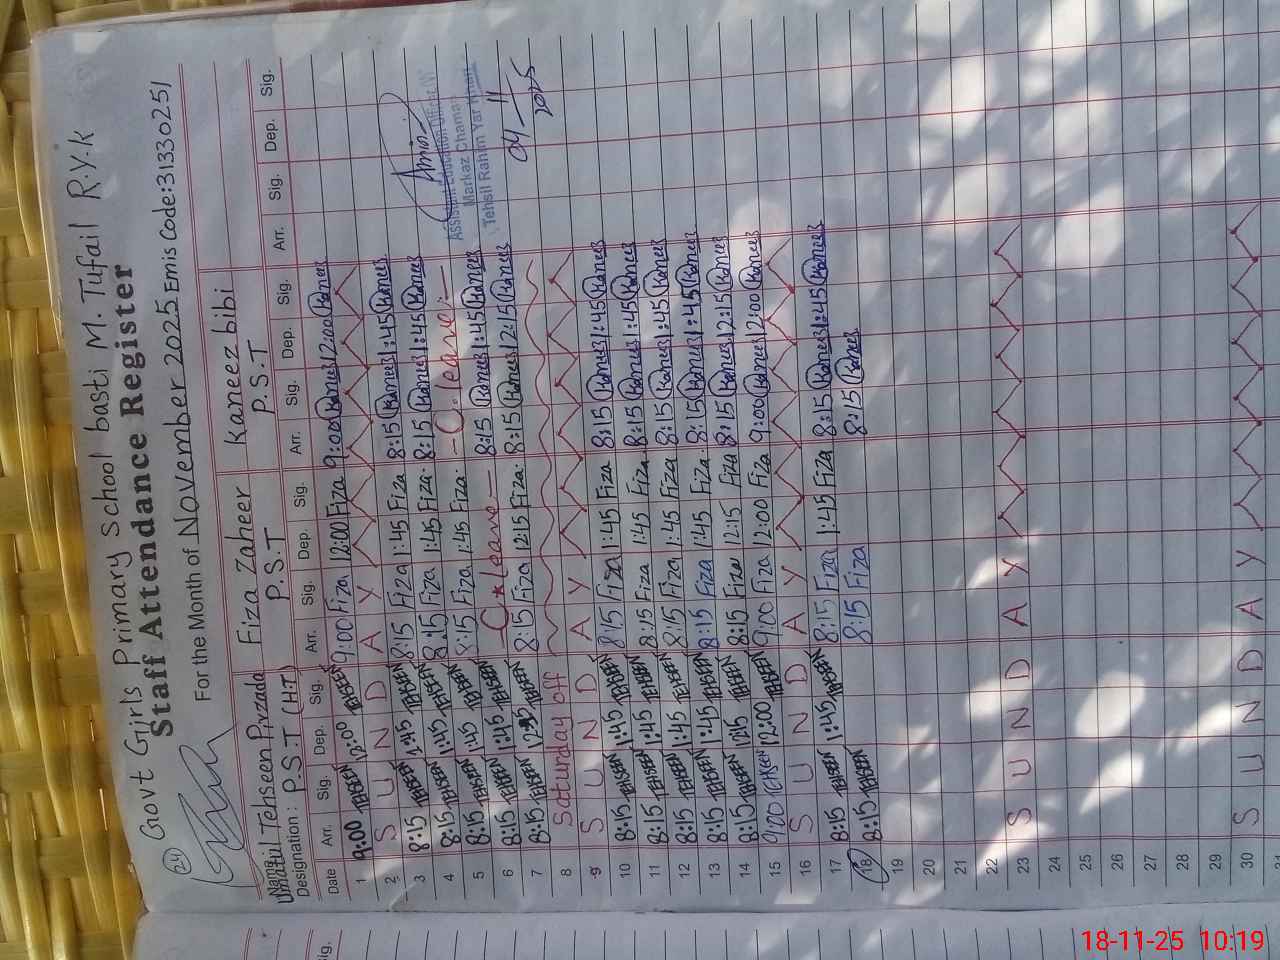 (24)
Govt Girls Primary School basti M. Tufail R.Y.K
Staff Attendance Register
For the Month of November 2025 Emis Code:31330251
Name Umatul Tehseen Pirzada Fiza Zaheer Kaneez bibi
Designation: P.S.T (H.T) P.S.T P.S.T
Date Arr. Sig. Dep. Sig. Arr. Sig. Dep. Sig. Arr. Sig. Dep. Sig. Arr. Sig. Dep. Sig.
1 9:00 TEHSEEN 12:00 TEHSEEN 9:00 Fiza 12:00 Fiza 9:00 Kaneez 12:00 Kaneez
2 S U N D A Y
3 8:15 TEHSEEN 1:45 TEHSEEN 8:15 Fiza 1:45 Fiza 8:15 Kaneez 1:45 Kaneez
4 8:15 TEHSEEN 1:45 TEHSEEN 8:15 Fiza 1:45 Fiza. 8:15 Kaneez 1:45 Kaneez
5 8:15 TEHSEEN 1:45 TEHSEEN 8:15 Fiza 1:45 Fiza. -C. leave:-
6 8:15 TEHSEEN 1:45 TEHSEEN -C leave- 8:15 Kaneez 1:45 Kaneez
7 8:15 TEHSEEN TEHSEEN 8:15 Fiza 12:15 Fiza. 8:15 Kaneez 12:15 Kaneez
8 Saturday off
9 S U N D A Y
10 8:15 TEHSEEN 1:45 TEHSEEN 8:15 Fiza 1:45 Fiza 8:15 Kaneez 1:45 Kaneez
11 8:15 TEHSEEN 1:45 TEHSEEN 8:15 Fiza 1:45 Fiza. 8:15 Kaneez 1:45 Kaneez
12 8:15 TEHSEEN 1:45 TEHSEEN 8:15 Fiza 1:45 Fiza 8:15 Kaneez 1:45 Kaneez
13 8:15 TEHSEEN 1:45 TEHSEEN 8:15 Fiza 1:45 Fiza. 8:15 Kaneez 1:45 Kaneez
14 8:15 TEHSEEN TEHSEEN 8:15 Fiza 12:15 Fiza 8:15 Kaneez 12:15 Kaneez
15 9:00 TEHSEEN 12:00 TEHSEEN 9:00 Fiza 12:00 Fiza 9:00 Kaneez 12:00 Kaneez
16 S U N D A Y
17 8:15 TEHSEEN 1:45 TEHSEEN 8:15 Fiza 1:45 Fiza 8:15 Kaneez 1:45 Kaneez
18 8:15 TEHSEEN 8:15 Fiza 8:15 Kaneez
19
20
21
22
23 S U N D A Y
24
25
26
27
28
29
30 S U N D A Y
31
Assistant Education Officer(W)
Markaz Chaman
Tehsil Rahim Yar Khan
04 11 2025
Sig.
18-11-25 10:19